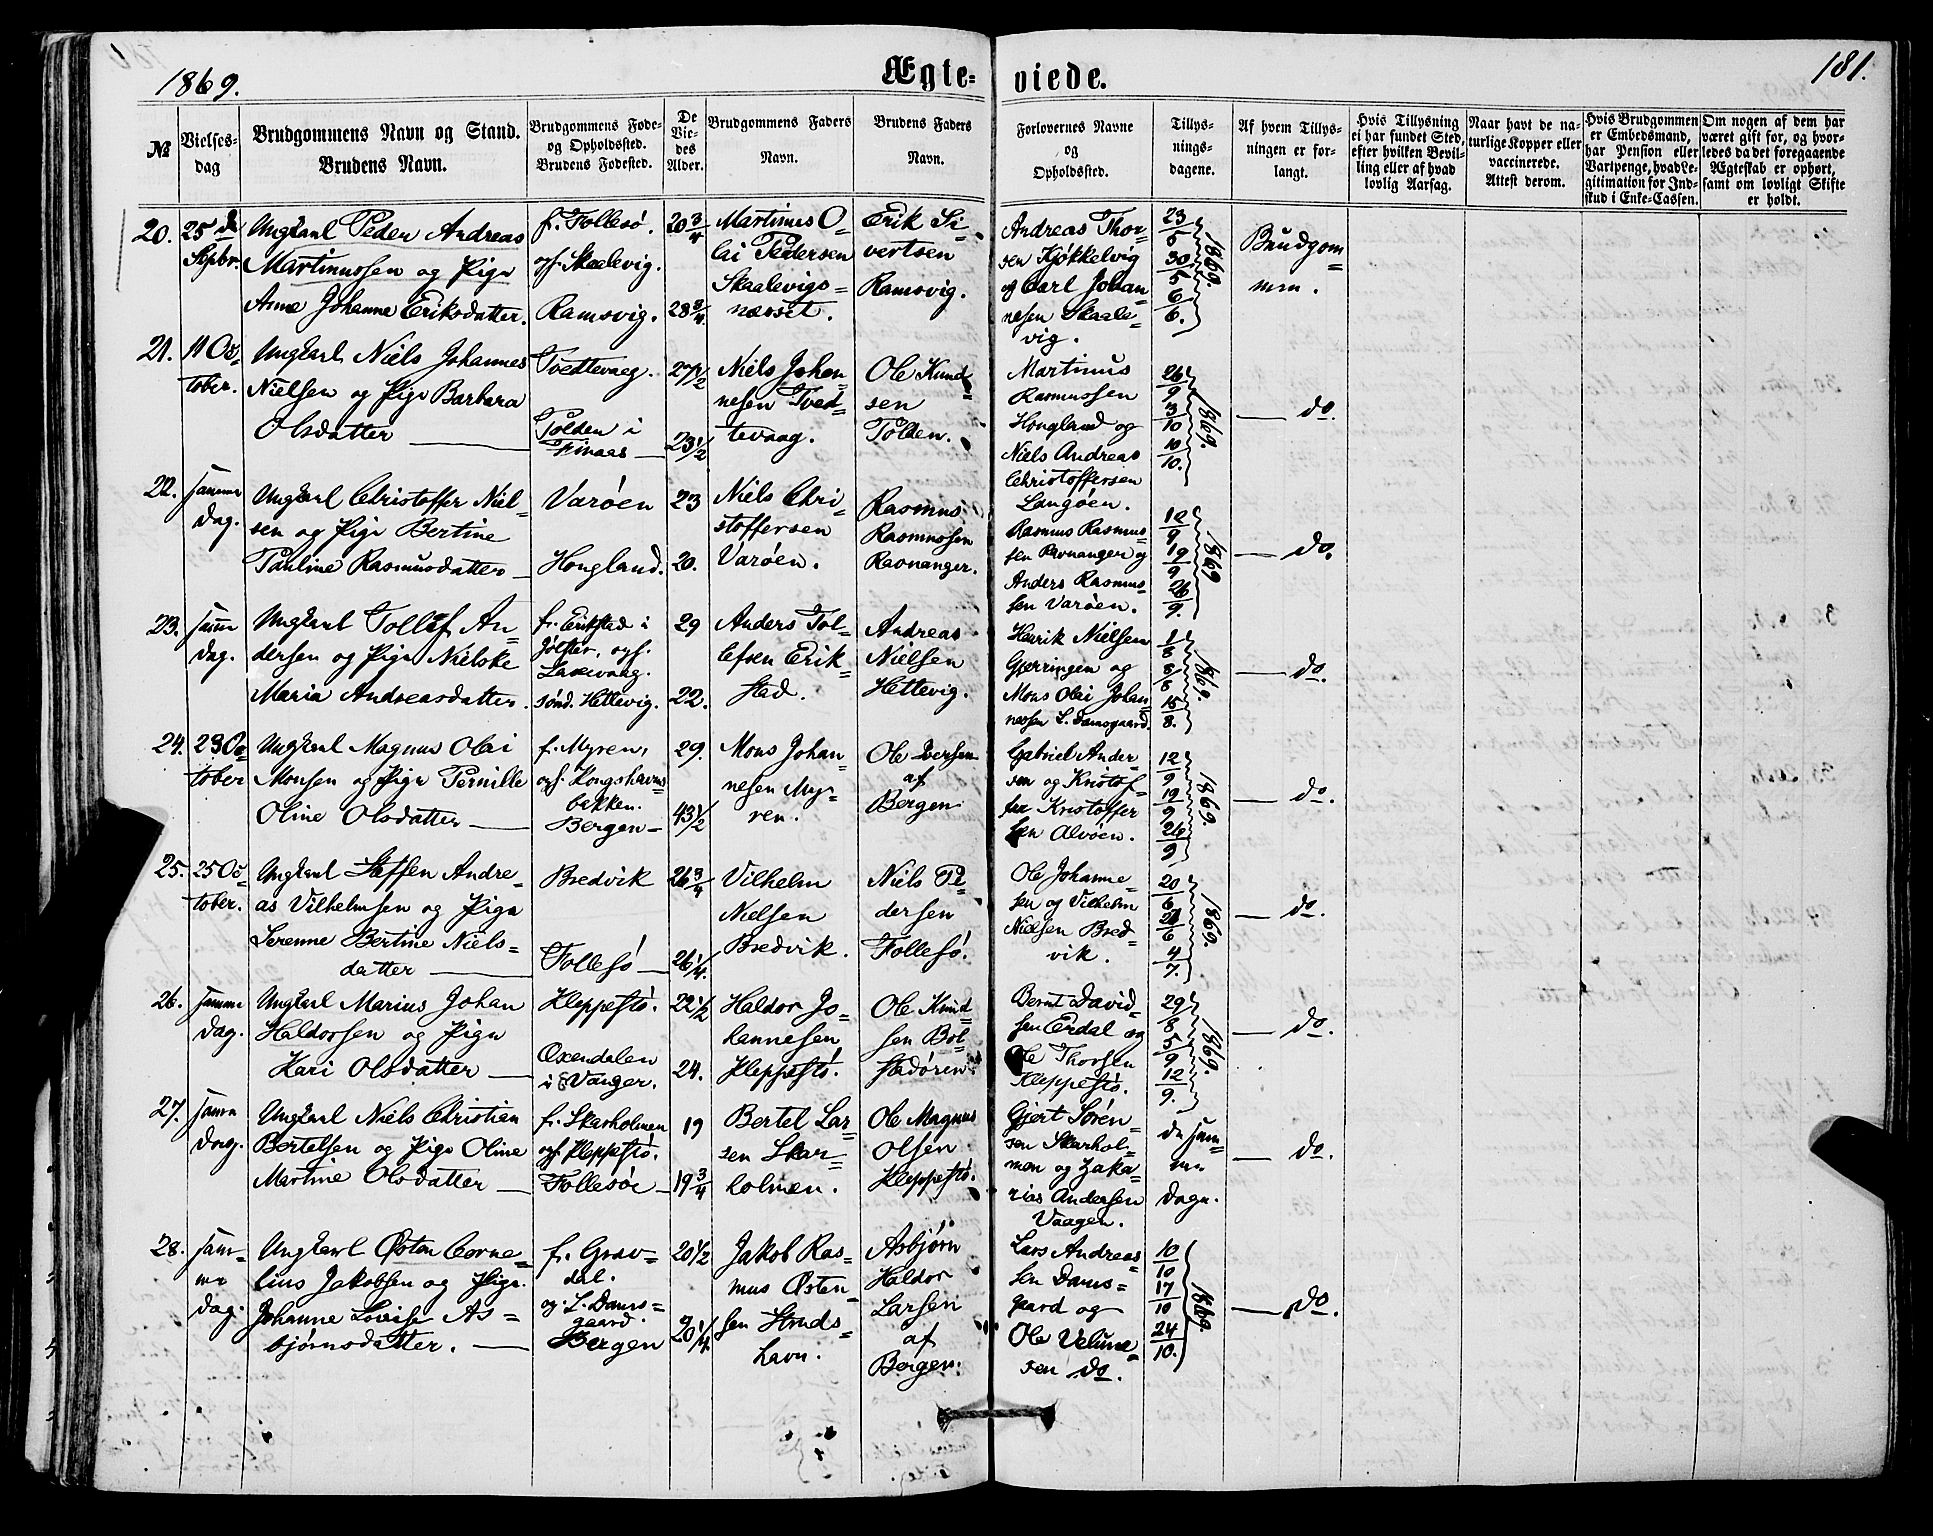 1869.
Ægteviede.
181.
№
Vielses-
dag
Brudgommens Navn og Stand.
Brudens Navn.
Brudgommens Føde-
og Opholdssted.
Brudens Fødested.
De
Vie-
des
Alder.
Brudgommens Faders
Navn.
Brudens Faders
Navn.
Forlovernes Navne
og
Opholdssted.
Tillys-
nings-
dagene.
Af hvem Tillys-
ningen er for-
langt.
Hvis Tillysning
ei har fundet Sted,
efter hvilken Bevil-
ling eller af hvad
lovlig Aarsag.
Naar havt de na-
turlige Kopper eller
vaccinerede.
Attest derom.
Hvis Brudgommen
er Embedsmand,
har Pension eller
Vartpenge, hvad Le-
gitimation for Ind-
skud i Enke-Cassen.
Om nogen af dem har
været gift før, og hvor-
ledes da det foregaaende
Ægteskab er ophørt,
samt om lovligt Skifte
er holdt.
20.
25 de
Septbr.
Ungkarl Peder Andreas
Martinussen og Pige
Anna Johanne Eriksdatter.
f. Follesö.
opf. Skaalevig.
Ramsvig.
20 3/4
28 3/4
Martinus O-
lai Pedersen
Skaalevigs=
næsset.
Erik Si-
vertsen
Ramsvig.
Andreas Thor-
sen Kjøkkelvig
og Carl Johan-
nesen Skaale-
vig.
23/5
30/5
6/6.
1869.
Brudgom=
men.
21.
11 Oc-
tober.
Ungkarl Niels Johannes
Nielsen og Pige Barbara
Olsdatter
Tvedtevaag.
Tolden i
Finaas
27 1/2
23 1/2
Niels Johan-
nesen Tved-
tevaag.
Ole Knud-
sen
Tolden.
Martinus
Rasmussen
Hongland og
Niels Andreas
Christoffersen
Langøen.
26/9
3/10
10/10.
1869.
do.
22.
samme
Dag.
Ungkarl Christoffer Niel-
sen og Pige Bertine
Pauline Rasmusdatter
Varöen
Hongland.
23
20.
Niels Chri-
stoffersen
Varöen.
Rasmus
Rasmussen
Ravnanger.
Rasmus Rasmus-
sen Ravnanger og
Anders Rasmus-
sen Varöen.
12/9
19/9
26/9.
1869
do.
23.
samme
Dag.
Ungkarl Tollef An-
dersen og Pige Nielske
Maria Andreasdatter.
f. Erikstad i
Jölster, opf.
Laxevaag.
sönd. Hettevig.
29
22.
Anders Tol-
lefsen Erik-
stad.
Andreas
Nielsen
Hettevig.
Henrik Nielsen
Gjerringen og
Mons Olai Johan-
nessen L. Damsgaard.
1/8
8/8
15/8.
1869.
do.
24.
23 Oc-
tober
Ungkarl Magnus Olai
Monsen og Pige Pernille
Oline Olsdatter
f. Myren,
opf. Kongshavns-
bakken.
Bergen
29.
43 1/2
Mons Johan-
nesen My-
ren.
Ole Iversen
af
Bergen
Gabriel Ander-
sen og Kristof-
fer Kristoffer
sen Alvöen.
12/9
19/9
26/9
1869.
do.
25.
25 Oc-
tober.
Ungkarl Steffen Andre-
as Vilhelmsen og Pige
Serenne Bertine Niels-
datter
Bredvik
Follesö
26 3/4
26 1/4.
Vilhelm
Nielsen
Bredvik.
Niels Pe-
dersen
Follesö.
Ole Johanne-
sen og Vilhelm
Nielsen Bred-
vik.
20/6
/6
4/7.
1869.
do.
26.
samme
Dag.
Ungkarl Marius Johan
Haldorsen og Pige
Kari Olsdatter
Kleppestö.
Oxendalen
i Vanger.
22 1/2
24.
Haldor Jo-
hannesen
Kleppestö.
Ole Knud-
sen Bol-
stadören.
Bernt David-
sen Erdal og
Ole Thorsen
Kleppestö.
29/8
5/9
12/9.
1869.
do.
27.
samme
Dag.
Ungkarl Niels Christian
Bertelsen og Pige Oline
Martine Olsdatter
f. Skarholmen
opf. Kleppestö.
Follesöe
19
19 3/4
Bertel Lar-
sen Skar-
holmen.
Ole Magnus
Olsen
Kleppestö.
Gjert Sören-
sen Skarhol-
men og Zaka-
rias Andersen
Vaagen.
de sam-
me
Dage.
do.
28.
sam-
me
Dag.
Ungkarl Østen Corne-
lius Jakobsen og Pige
Johanne Lovise As-
bjørnsdatter.
f. Grav-
dal.
og. L. Dams-
gaard.
Bergen
20 1/2
20 1/4.
Jakob Ras-
mus Østen-
sen Struds-
havn.
Asbjørn
Haldor
Larsen
af
Bergen.
Lars Andreas-
sen Dams-
gaard og
Ole Velum-
sen do.
10/10
17/10
24/10.
1869.
do.